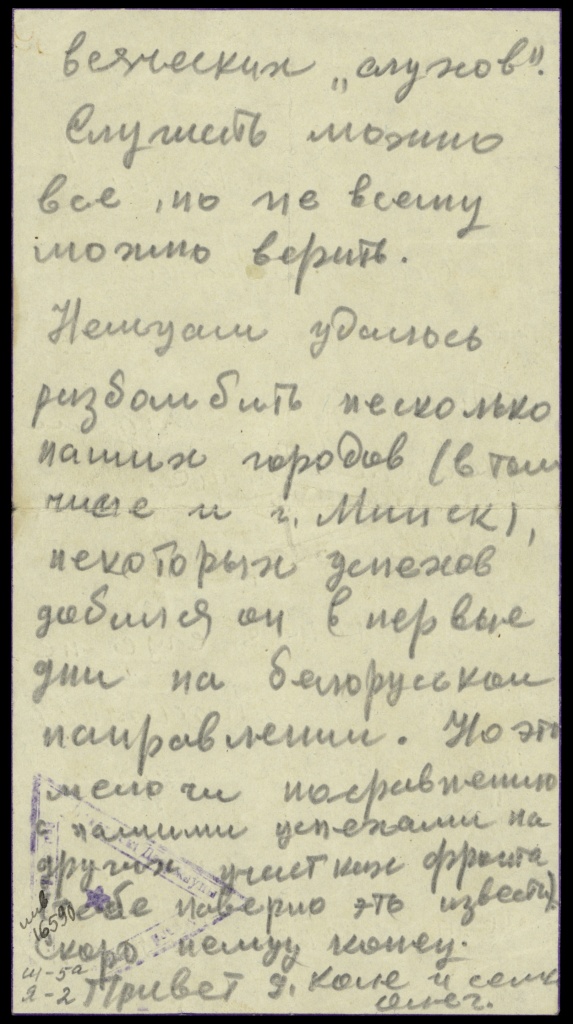 всяческих „слухов".
Слушать можно
все, но не всему
можно верить.
Немцам удалось
разбомбить несколько
наших городов (в том
числе и г. Минск),
некоторых успехов
добился он в первые
дни на белоруськом
направлении. Но это
мелочи посравнению
с нашими успехами на
других участках фронта
Тебе наверно это известн).
Скоро немцу конец.
Привет д. Коле и
инв
16590
Ш-5а
Я-2